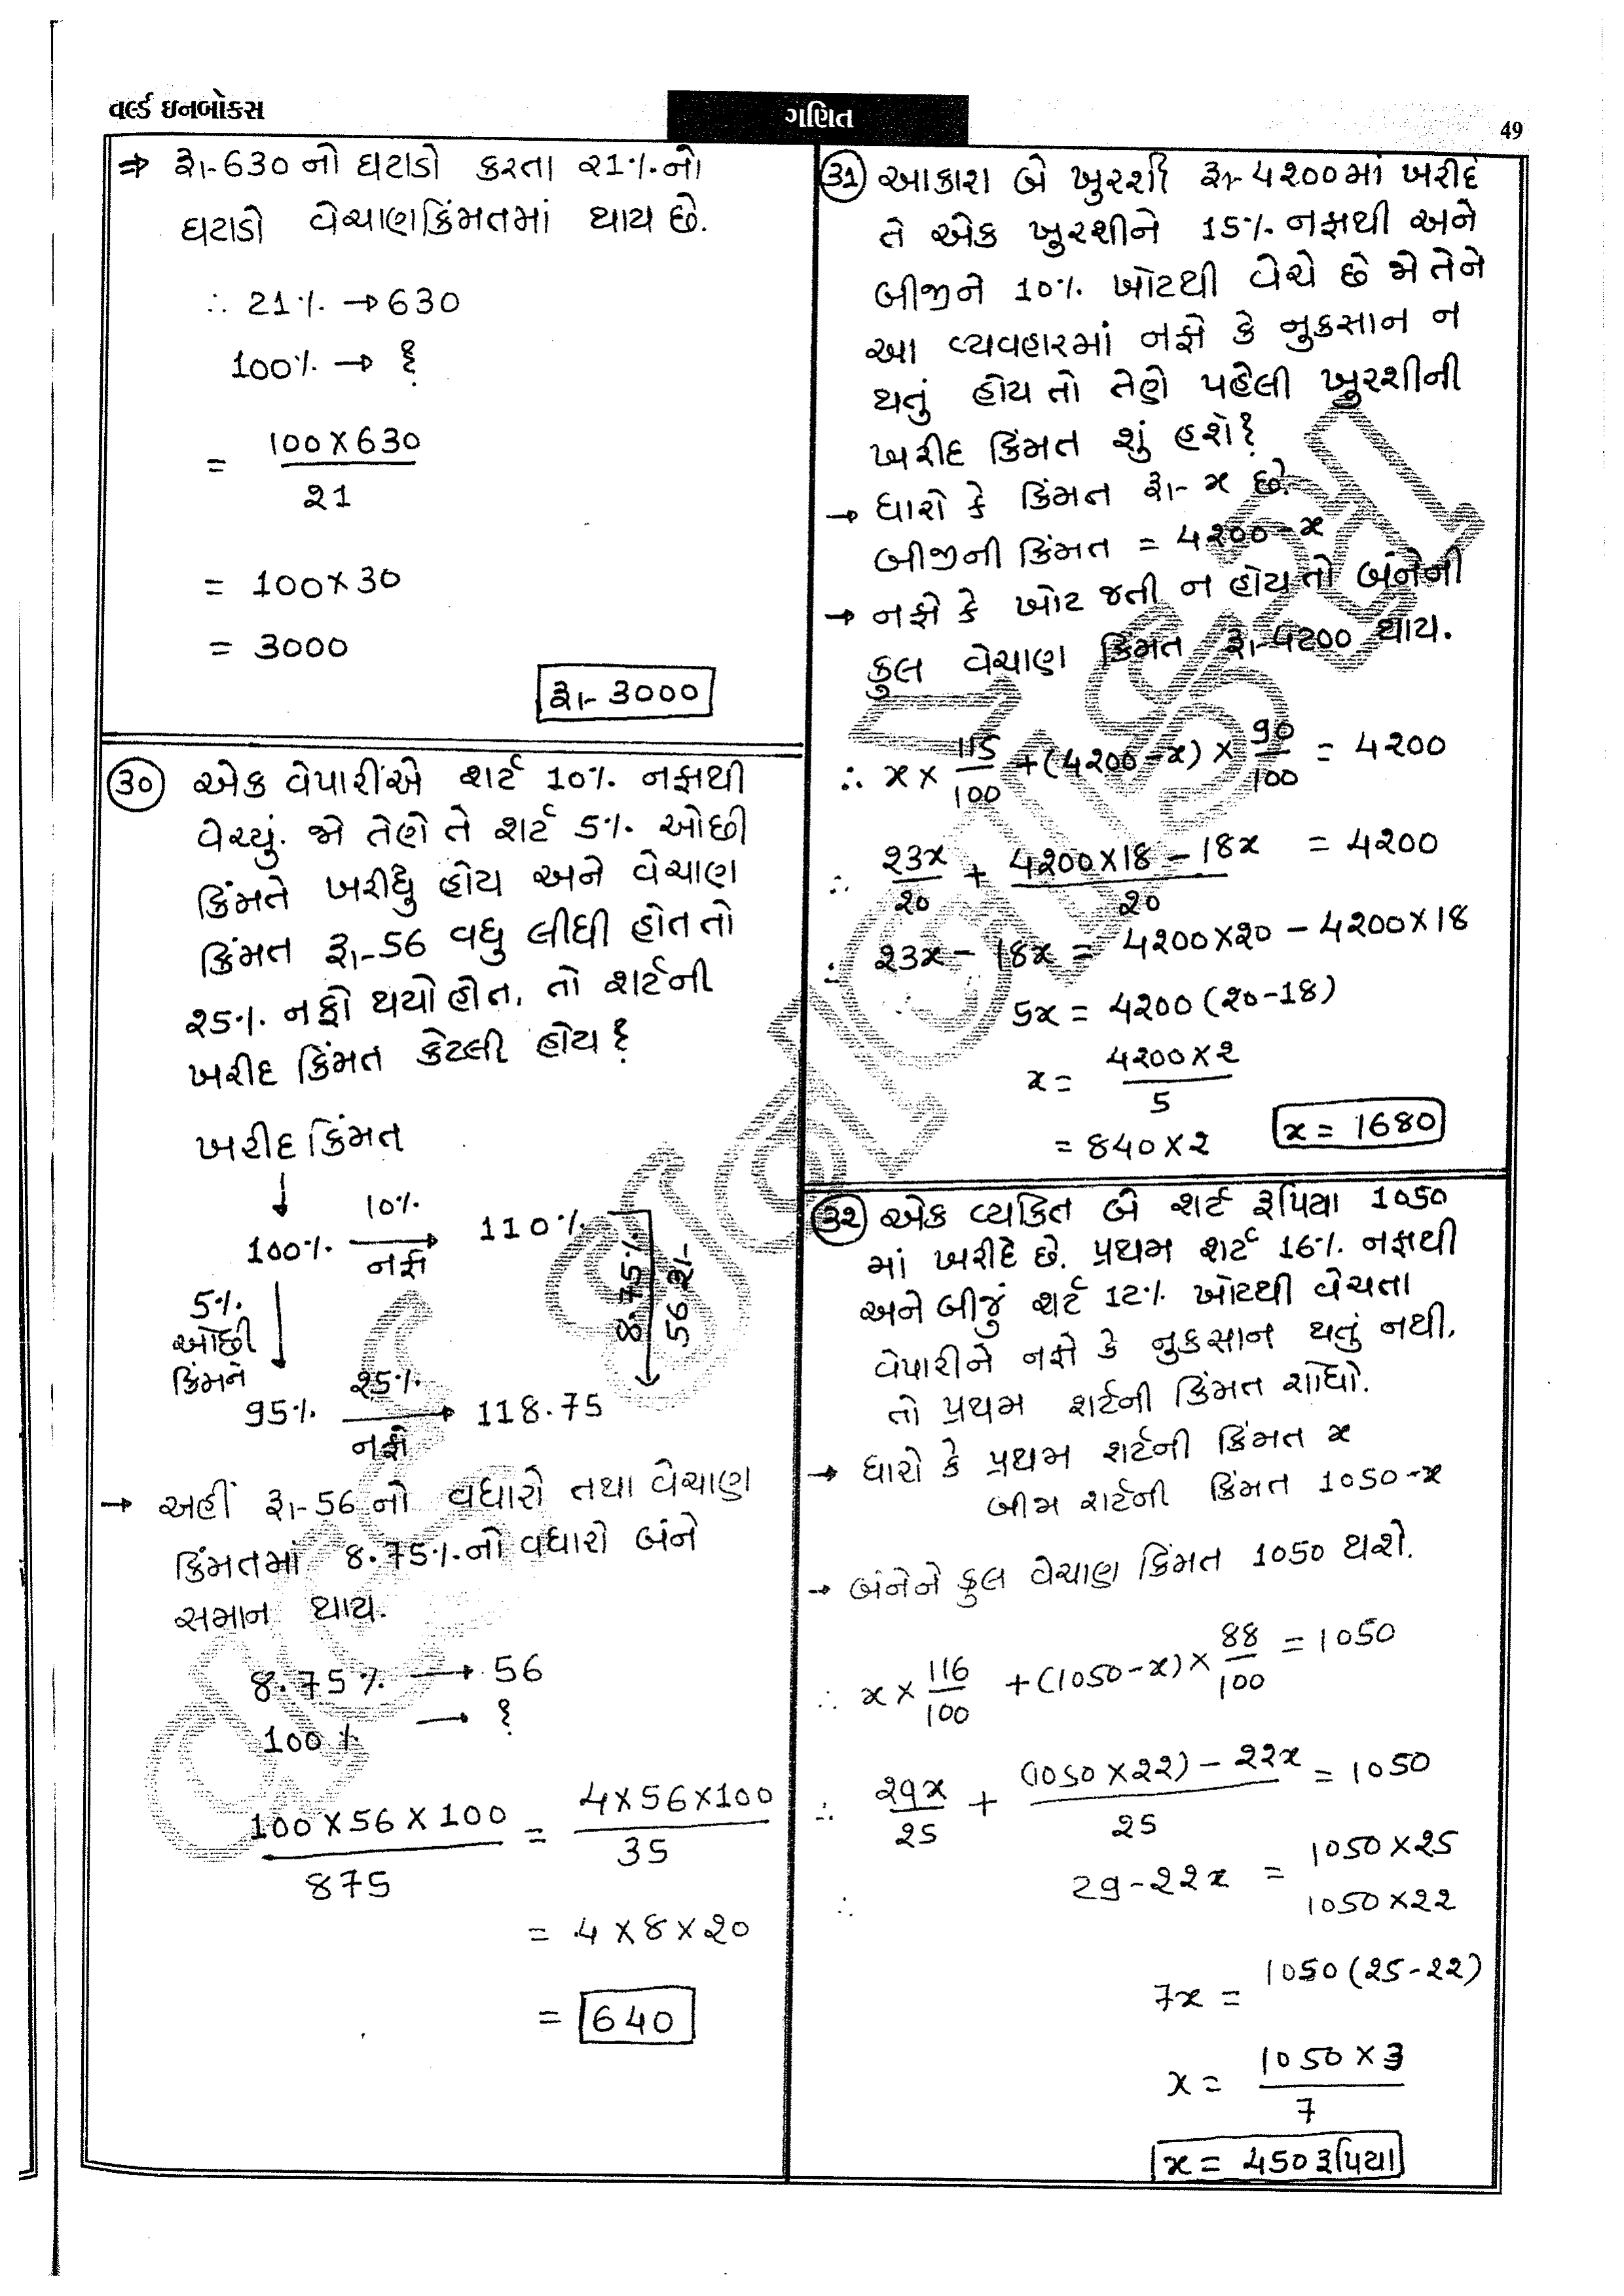 વર્લ્ડ ઇનબોક્સ
ગણિત
49
⇒ રૂા-630 નો ઘટાડો કરતા ૨1%નો
ઘટાડો વેચાણકિંમતમાં થાય છે.
∴ 21% → 630
100% → ?
= 100 × 630 / ૨1
= 100 × 30
= 3000
રૂા- 3000
(૩૦) એક વેપારીએ શર્ટ 10% નફાથી
વેચ્યું. જો તેણે તે શર્ટ 5% ઓછી
કિંમતે ખરીદ્યુ હોય અને વેચાણ
કિંમત રૂા-56 વધુ લીધી હોત તો
૨5% નફો થયો હોત, તો શર્ટની
ખરીદ કિંમત કેટલી હોય ?
ખરીદ કિંમત
↓
100% → 10% નફો 110%
8.75% 56 રૂા-
5%
ઓછી
કિંમતે
95% → ૨5% નફો 118.75
→ અહીં રૂા-56 નો વધારો તથા વેચાણ
કિંમતમાં 8.75%નો વધારો બંને
સમાન થાય.
8.75% → 56
100% → ?
100 × 56 × 100 / 875 = 4 × 56 × 100 / 35
= 4 × 8 × ૨0
= 640
(૩1) આકાશ બે ખુરશી રૂા-4૨00માં ખરીદે
તે એક ખુરશીને 15% નફાથી અને
બીજીને 10% ખોટથી વેચે છે જો તેને
આ વ્યવહારમાં નફો કે નુકસાન ન
થતું હોય તો તેણે પહેલી ખુરશીની
ખરીદ કિંમત શું હશે ?
→ ધારો કે કિંમત રૂા- x છે.
બીજીની કિંમત = 4૨00 - x
→ નફો કે ખોટ જતી ન હોય તો બંનેની
કુલ વેચાણ કિંમત રૂા-4૨00 થાય.
∴ x × 115/100 + (4૨00 - x) × 90/100 = 4૨00
∴ ૨3x/૨0 + 4૨00 × 18 - 18x / ૨0 = 4૨00
∴ ૨3x - 18x = 4૨00 × ૨0 - 4૨00 × 18
5x = 4૨00 (૨0-18)
x = 4૨00 × ૨ / 5
= 840 × ૨
x = 1680
(૩૨) એક વ્યકિત બે શર્ટ રૂપિયા 1050
માં ખરીદે છે. પ્રથમ શર્ટ 16% નફાથી
અને બીજું શર્ટ 12% ખોટથી વેચતા
વેપારીને નફો કે નુકસાન થતું નથી.
તો પ્રથમ શર્ટની કિંમત શોધો.
→ ધારો કે પ્રથમ શર્ટની કિંમત x
બીજા શર્ટની કિંમત 1050 - x
→ બંનેને કુલ વેચાણ કિંમત 1050 થશે.
∴ x × 116/100 + (1050 - x) × 88/100 = 1050
∴ ૨9x/૨5 + (1050 × ૨૨) - ૨૨x / ૨5 = 1050
∴ ૨9 - ૨૨x = 1050 × ૨5
1050 × ૨૨
7x = 1050 (૨5-૨૨)
x = 1050 × 3 / 7
x = 450 રૂપિયા